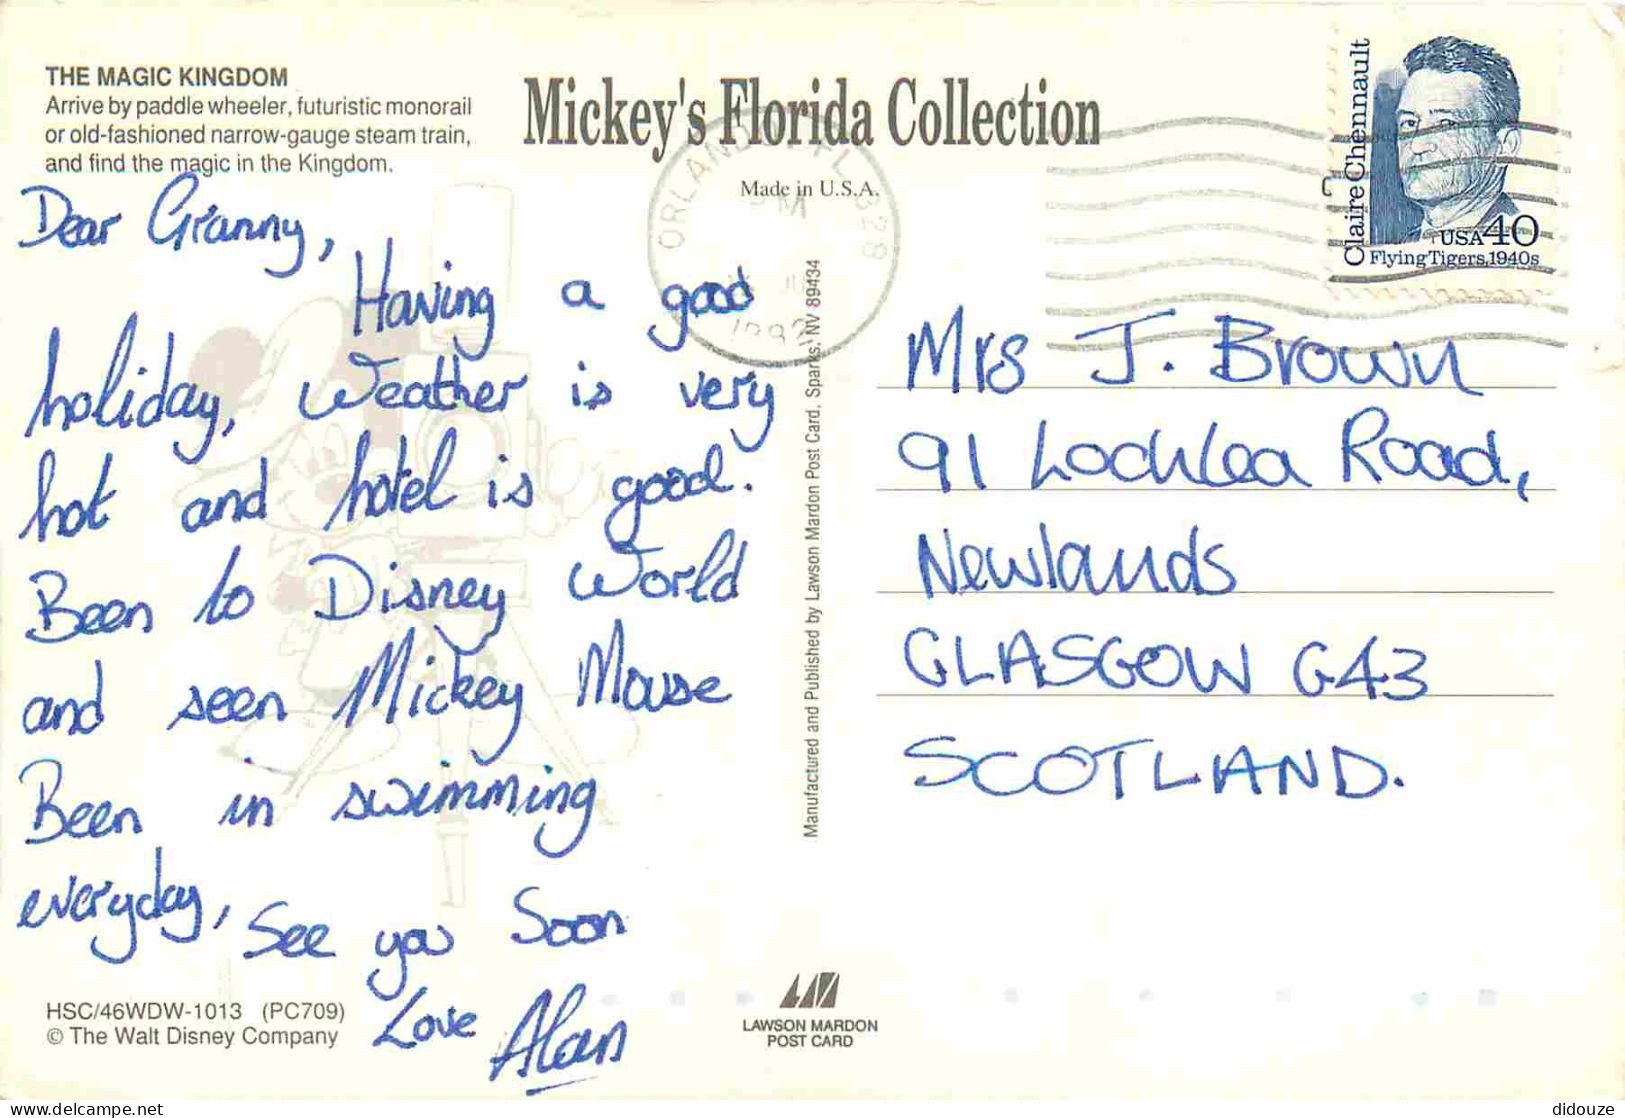 THE MAGIC KINGDOM
Arrive by paddle wheeler, futuristic monorail
or old-fashioned narrow-gauge steam train,
and find the magic in the Kingdom.
Mickey's Florida Collection
Made in U.S.A.
ORLANDO, FL 328
PM
1992
Claire Chennault
USA 40
Flying Tigers, 1940s
Dear Granny,
Having a good
holiday, Weather is very
hot and hotel is good.
Been to Disney World
and seen Mickey Mouse
Been in swimming
everyday,
See you Soon
Love Alan
HSC/46WDW-1013 (PC709)
© The Walt Disney Company
Manufactured and Published by Lawson Mardon Post Card, Sparks, NV 89434
LAWSON MARDON
POST CARD
Mrs J. Brown
91 Lochlea Road,
Newlands
GLASGOW G43
SCOTLAND.
didouze